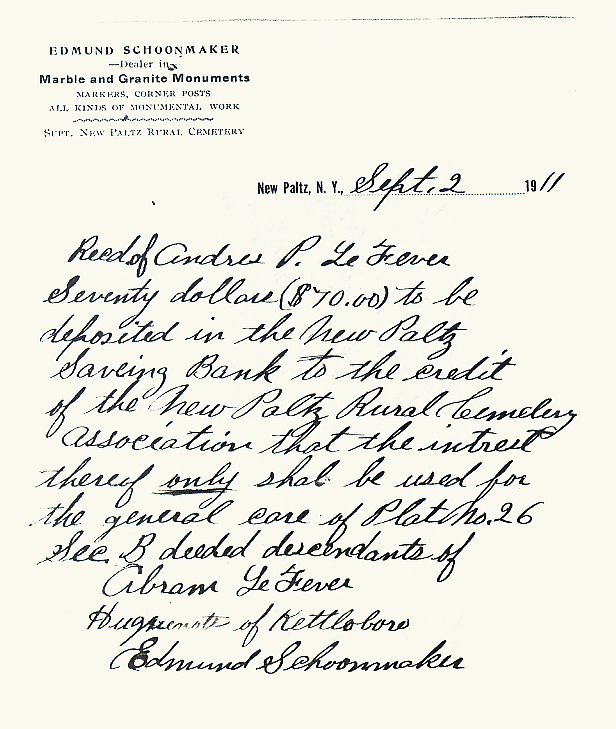 EDMUND SCHOONMAKER
—Dealer in—
Marble and Granite Monuments
MARKERS, CORNER POSTS
ALL KINDS OF MONUMENTAL WORK
SUPT. NEW PALTZ RURAL CEMETERY
New Paltz, N. Y., Sept. 2 1911
Recd of Andrew P. Le Fever
Seventy dollars ($70.00) to be
deposited in the New Paltz
Saveing Bank to the credit
of the New Paltz Rural Cemetery
Association that the intrest
thereof only shal be used for
the general care of Plat No. 26
Sec. B deeded descendants of
Abram Le Fever
Huguenots of Kettlboro
Edmund Schoonmaker